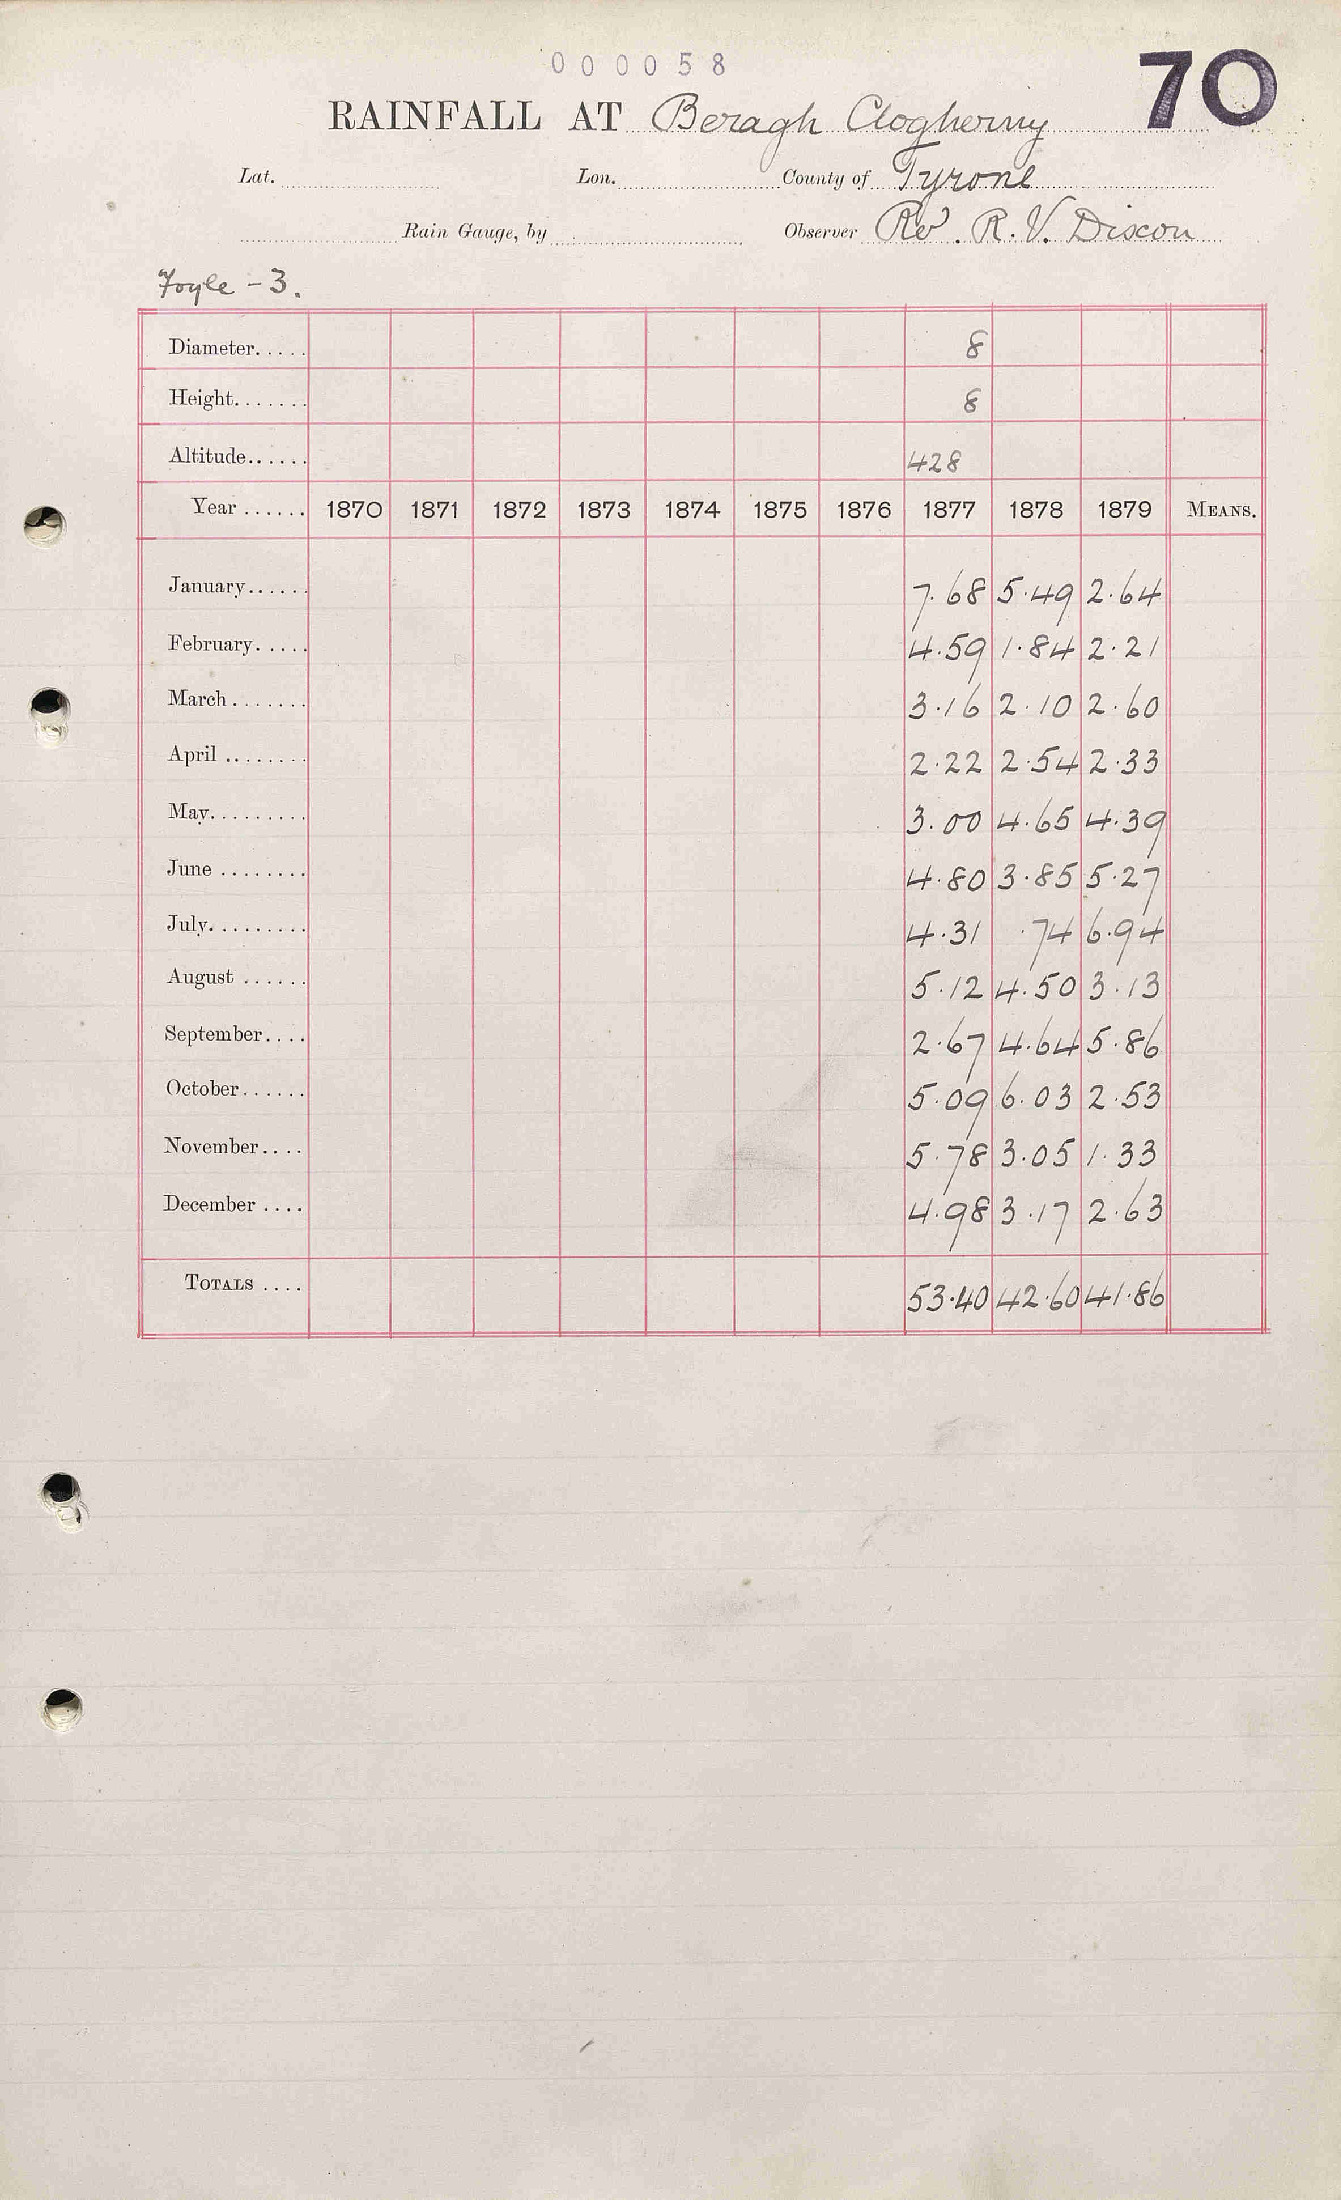 000058
70
RAINFALL AT Beragh Clogherny
Lat. Lon. County of Tyrone
Rain Gauge, by Observer Revd. R. V. Dixon
Foyle - 3.
Diameter..... 8
Height....... 8
Altitude...... 428
Year ...... 1870 1871 1872 1873 1874 1875 1876 1877 1878 1879 MEANS.
January...... 7.68 5.49 2.64
February..... 4.59 1.84 2.21
March ....... 3.16 2.10 2.60
April ........ 2.22 2.54 2.33
May......... 3.00 4.65 4.39
June ........ 4.80 3.85 5.27
July......... 4.31 .74 6.94
August ...... 5.12 4.50 3.13
September.... 2.67 4.64 5.86
October...... 5.09 6.03 2.53
November.... 5.78 3.05 1.33
December .... 4.98 3.17 2.63
TOTALS .... 53.40 42.60 41.86